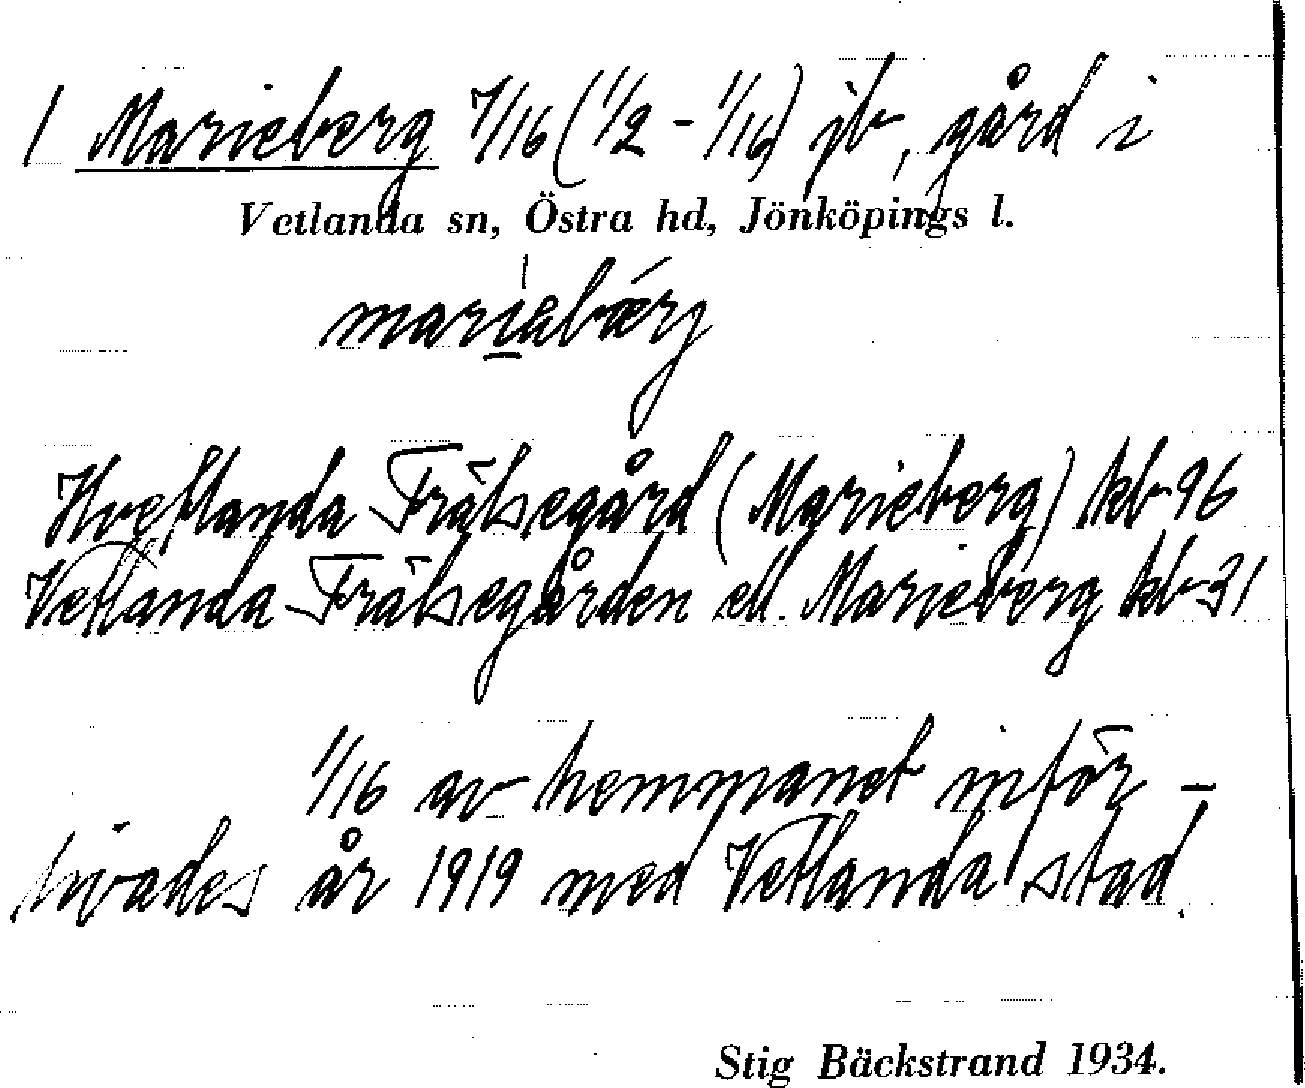 1 Marieberg 7/16 (1/2 - 1/16) jb, gård i
Vetlanda sn, Östra hd, Jönköpings l.
Hvetlanda Frälsegård (Marieberg) kb 96
Vetlanda Frälsegården ell. Marieberg kb 31
1/16 av hemmanet inför-
livades år 1919 med Vetlanda stad.
Stig Bäckstrand 1934.